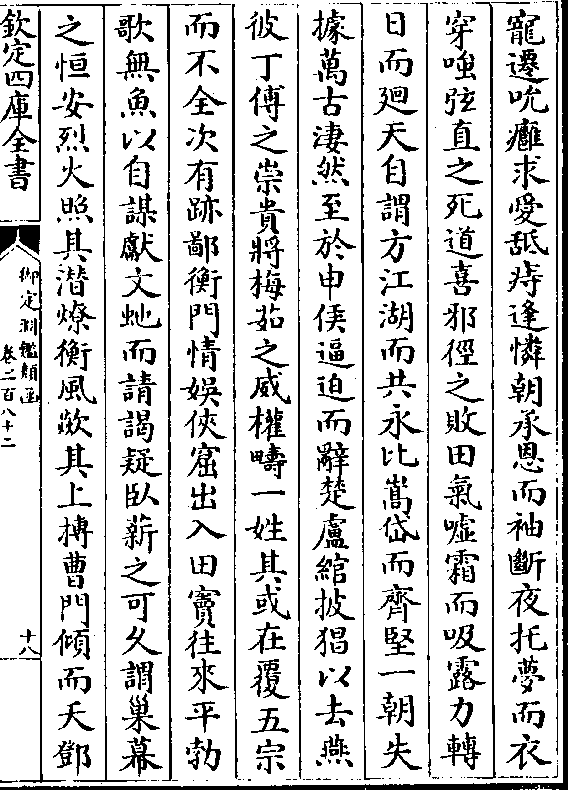 寵遷吮癰求愛舐痔逢憐朝承恩而袖斷夜托夢而衣
穿嗤弦直之死道喜邪徑之敗田氣噓霜而吸露力轉
日而廻天自謂方江湖而共永比嵩岱而齊堅一朝失
據萬古淒然至於申侯逼迫而辭楚盧綰披猖以去燕
彼丁傅之崇貴將梅茹之威權疇一姓其或在覆五宗
而不全次有跡鄙衡門情娛俠窟出入田竇往來平勃
歌無魚以自謀獻文虵而請謁疑臥薪之可久謂巢幕
之恒安烈火照其潛燎衡風欻其上摶曹門傾而夭鄧
欽定四庫全書
御定淵鑑類函
卷二百八十二
十八